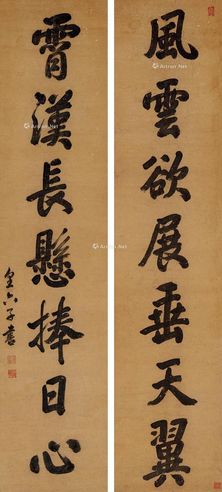 風雲欲展垂天翼
霄漢長懸捧日心
皇六子書